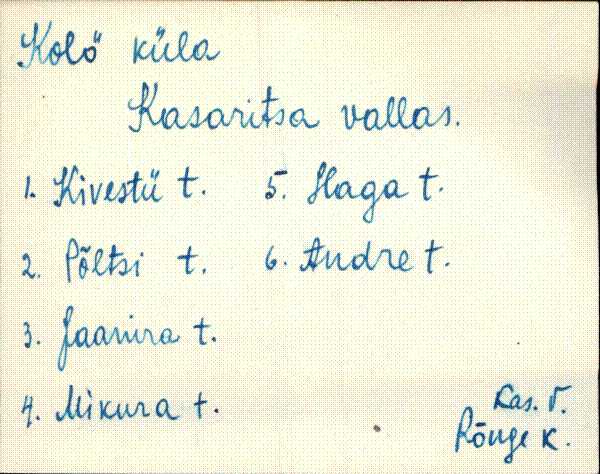 Kolö küla
Kasaritsa vallas.
1. Kivestü t.
2. Põltsi t.
3. Jaanira t.
4. Mikura t.
5. Haga t.
6. Andre t.
Kas. v.
Rõuge K.